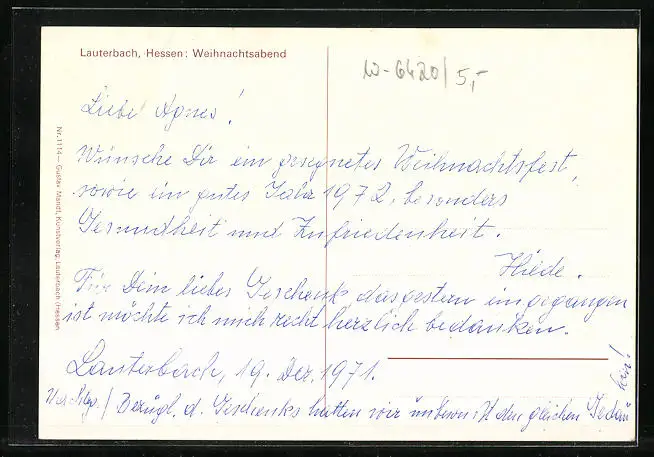 Lauterbach, Hessen: Weihnachtsabend
W-6420/5,-
Liebe Agnes!
Wünsche Dir ein gesegnetes Weihnachtsfest,
sowie ein gutes Jahr 1972, besonders
Gesundheit und Zufriedenheit.
Hilde.
Für Dein liebes Geschenk das gestern eingegangen
ist möchte ich mich recht herzlich bedanken.
Lauterbach, 19. Dez. 1971.
Bezügl. d. Geschenks hatten wir unbewußt den gleichen Gedan
ken!
Nr. 1114 — Gustav Mandt, Kunstverlag, Lauterbach/Hessen